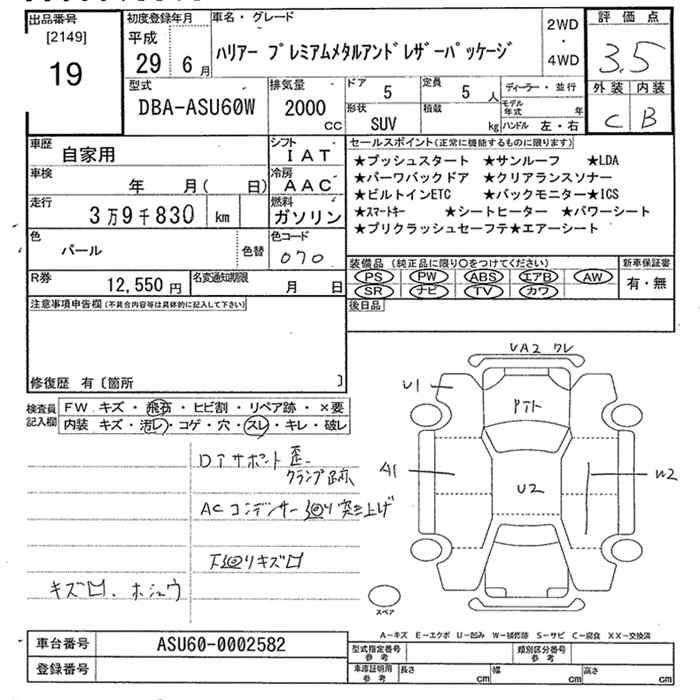 出品番号
[2149]
19
初度登録年月
平成
29 6 月
車名・グレード
ハリアー プレミアムメタルアンドレザーパッケージ
2WD
・
4WD
評価点
3.5
外装 内装
C B
型式
DBA-ASU60W
排気量
2000
CC
ドア
5
定員
5 人
ディーラー・並行
モデル年式 年
形状
SUV
積載
kg
ハンドル 左・右
車歴
自家用
シフト
IAT
車検
年 月( 日)
冷房
AAC
走行
3万9千830 km
燃料
ガソリン
色
パール
色替
色コード
070
R券
12,550 円
名変通知期限
月 日
セールスポイント(正常に機能するものに限ります)
★プッシュスタート ★サンルーフ ★LDA
★パーワバックドア ★クリアランスソナー
★ビルトインETC ★バックモニター★ICS
★スマートキー ★シートヒーター ★パワーシート
★プリクラッシュセーフテ★エアーシート
装備品(純正品に限り○をつけてください)
PS PW ABS エアB AW
SR ナビ TV カワ
新車保証書
有・無
後日品
注意事項申告欄(不具合内容等は具体的に記入して下さい)
修復歴 有〔箇所 〕
検査員記入欄
FW キズ・飛石・ヒビ割・リペア跡・×要
内装 キズ・汚レ・コゲ・穴・スレ・キレ・破レ
Dアサポート歪
クランプ跡
ACコンデンサー廻り突き上げ
下廻りキズ凹
キズ凹、ホシュウ
UA2 ワレ
U1
A1
U2
W2
スペア
A−キズ E−エクボ U−凹み W−補修跡 S−サビ C−腐食 XX−交換済
車台番号
ASU60-0002582
登録番号
型式指定番号
参考
類別区分番号
参考
車庫証明用
参考
長さ cm
幅 cm
高さ cm